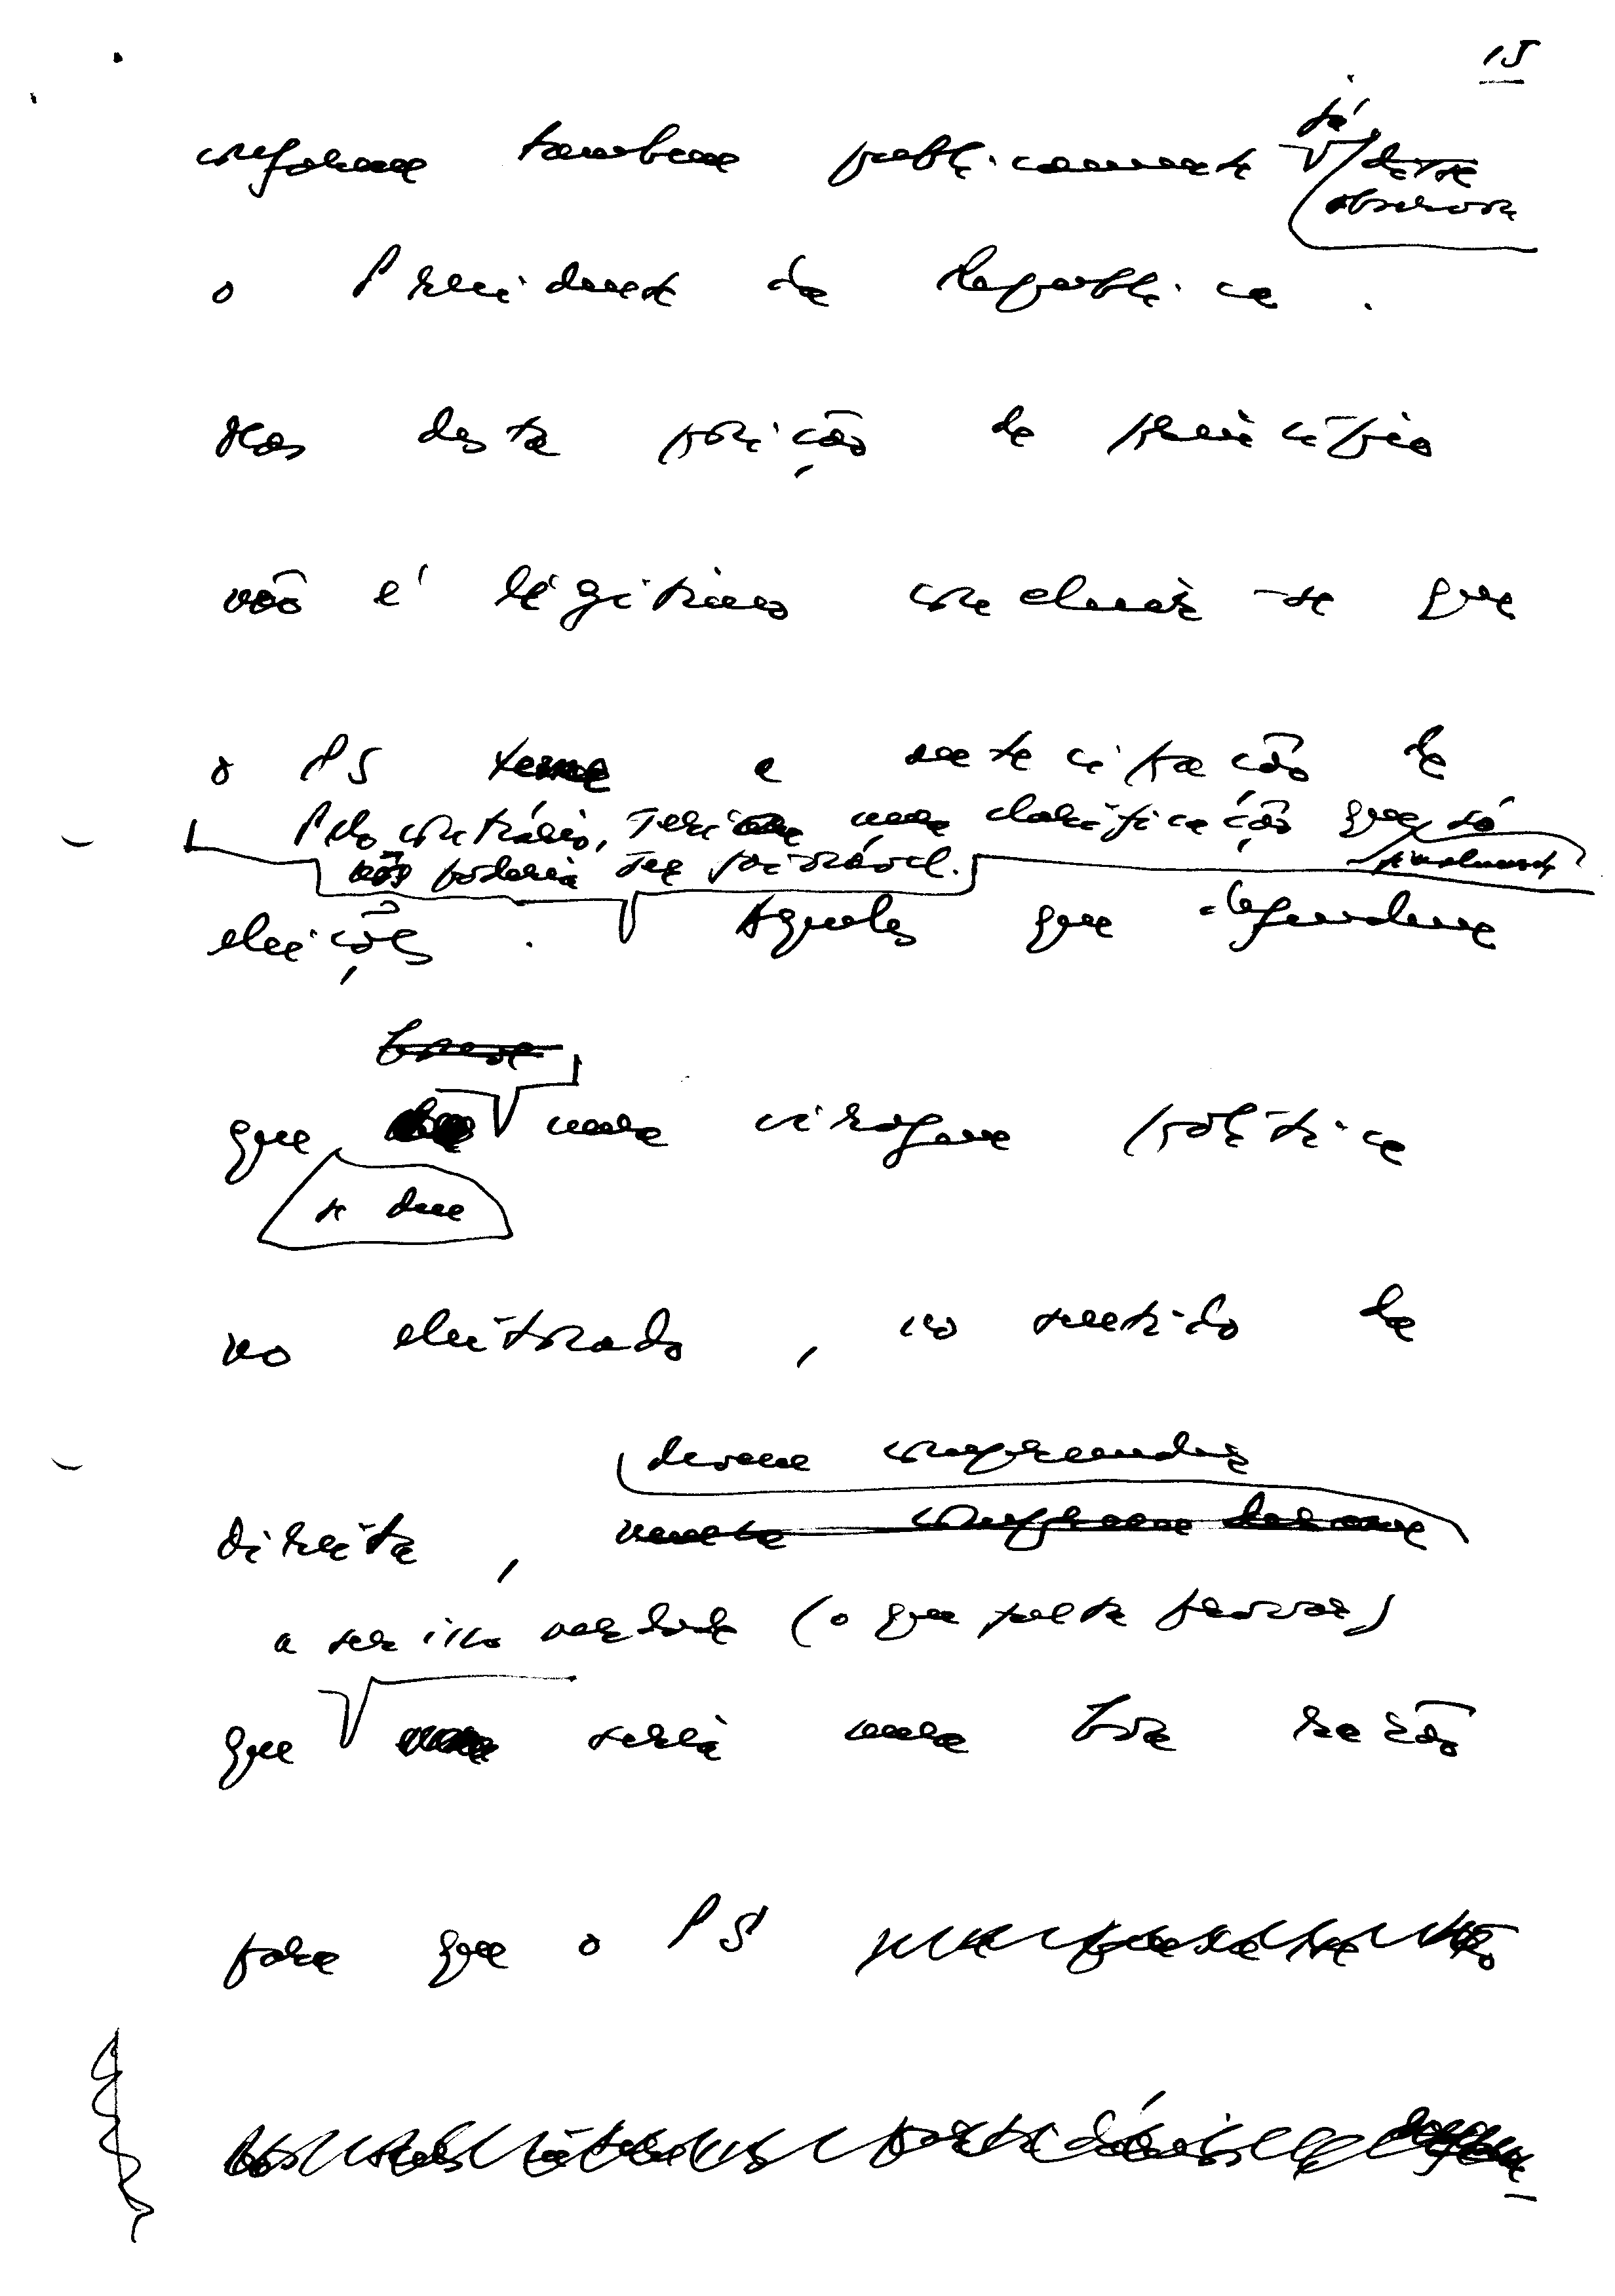 15
conforme também publicamente já disse
observou
o Presidente da República.
Mas desta posição de princípio
não é legítimo concluir-se que
o PS teme a antecipação de
Pelo contrário, seria uma clarificação que só
não poderia ser finalmente
favorável.
eleições. Aqueles que defendem
que uma viragem política
se deu
no eleitorado, no sentido da
devem compreender
direita,
a ser isso verdade (o que falta provar)
que seria uma boa razão
para que o PS